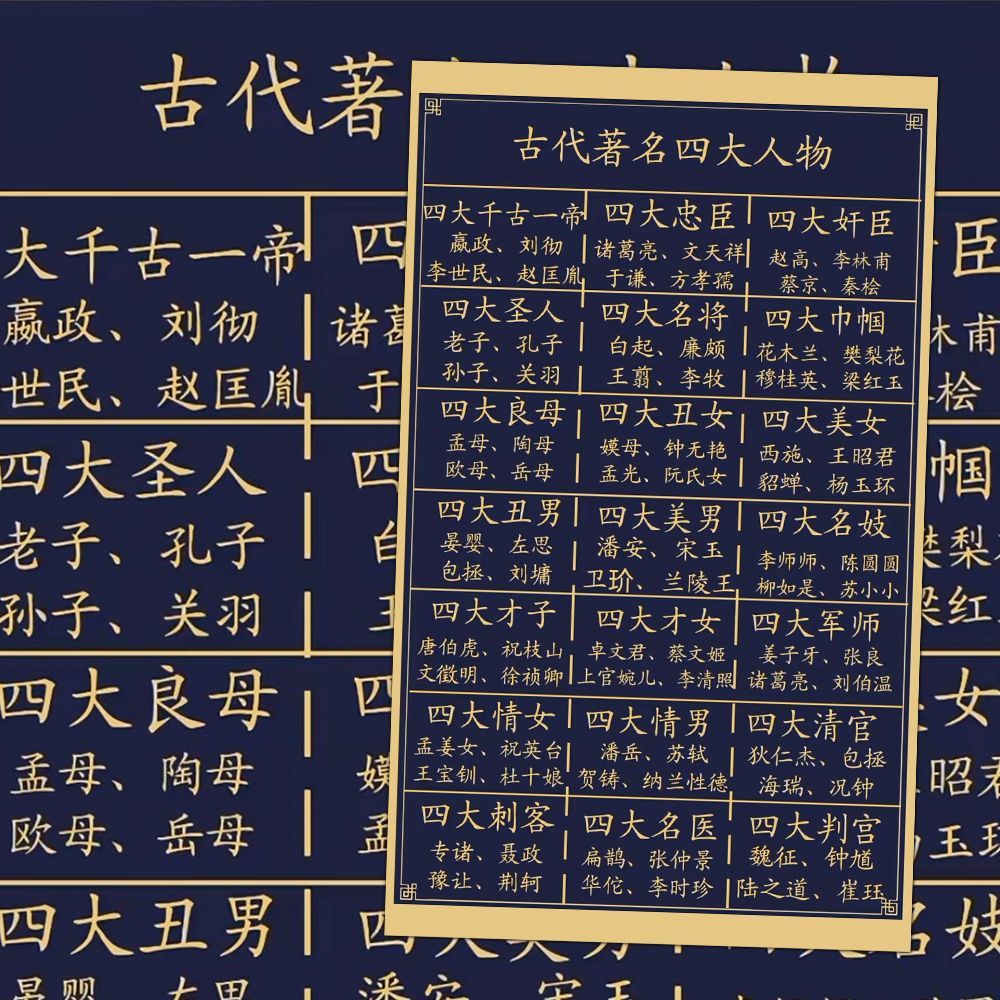 古代著名四大人物
四大千古一帝
嬴政、刘彻
李世民、赵匡胤
四大忠臣
诸葛亮、文天祥
于谦、方孝孺
四大奸臣
赵高、李林甫
蔡京、秦桧
四大圣人
老子、孔子
孙子、关羽
四大名将
白起、廉颇
王翦、李牧
四大巾帼
花木兰、樊梨花
穆桂英、梁红玉
四大良母
孟母、陶母
欧母、岳母
四大丑女
嫫母、钟无艳
孟光、阮氏女
四大美女
西施、王昭君
貂蝉、杨玉环
四大丑男
晏婴、左思
包拯、刘墉
四大美男
潘安、宋玉
卫玠、兰陵王
四大名妓
李师师、陈圆圆
柳如是、苏小小
四大才子
唐伯虎、祝枝山
文徵明、徐祯卿
四大才女
卓文君、蔡文姬
上官婉儿、李清照
四大军师
姜子牙、张良
诸葛亮、刘伯温
四大情女
孟姜女、祝英台
王宝钏、杜十娘
四大情男
潘岳、苏轼
贺铸、纳兰性德
四大清官
狄仁杰、包拯
海瑞、况钟
四大刺客
专诸、聂政
豫让、荆轲
四大名医
扁鹊、张仲景
华佗、李时珍
四大判宫
魏征、钟馗
陆之道、崔珏
古代著
大千古一帝
嬴政、刘彻
世民、赵匡胤
四
诸葛
于
臣
林甫
桧
四大圣人
老子、孔子
孙子、关羽
四
白
王
帼
樊梨
梁红
四大良母
孟母、陶母
欧母、岳母
四
嫫
孟
女
昭君
玉环
四大丑男
晏婴、左思
四大美男
潘安、宋玉
名妓